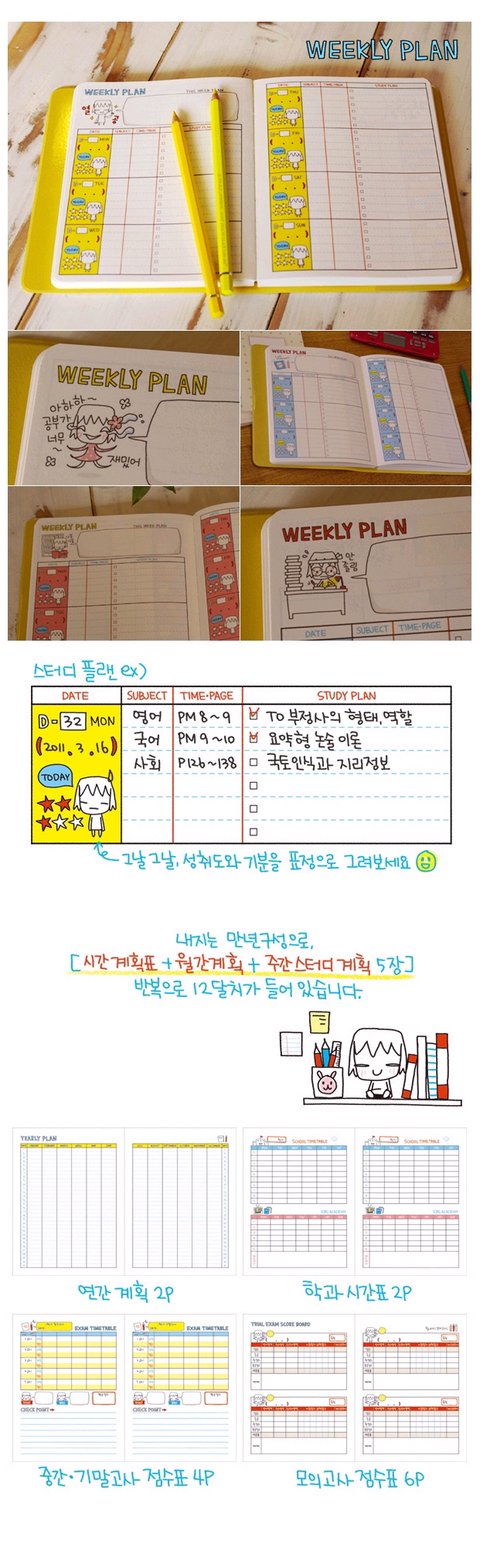 WEEKLY PLAN
WEEKLY PLAN
THIS WEEK PLAN
열공
DATE SUBJECT TIME·PAGE STUDY PLAN
DATE SUBJECT TIME·PAGE STUDY PLAN
D- MON
TODAY
D- TUE
TODAY
D- WED
TODAY
D- THU
TODAY
D- FRI
TODAY
D- SAT
TODAY
D- SUN
TODAY
WEEKLY PLAN
아하하~
공부가
너무
~
재밌어
WEEKLY PLAN
WEEKLY PLAN
THIS WEEK PLAN
WEEKLY PLAN
안
졸림
DATE SUBJECT TIME·PAGE
스터디 플랜 ex)
DATE SUBJECT TIME·PAGE STUDY PLAN
D-32 MON
(2011. 3. 16)
TODAY
영어 PM 8~9 TO 부정사의 형태, 역할
국어 PM 9~10 요약형 논술 이론
사회 P126~138 국토인식과 지리정보
그날그날, 성취도와 기분을 표정으로 그려보세요
내지는 만년구성으로,
[시간계획표 + 월간계획 + 주간스터디 계획 5장]
반복으로 12달치가 들어 있습니다.
YEARLY PLAN
연간 계획 2P
SCHOOL TIMETABLE
SCHOOL TIMETABLE
학과 시간표 2P
EXAM TIMETABLE
EXAM TIMETABLE
CHECK POINT
CHECK POINT
중간·기말고사 점수표 4P
TRIAL EXAM SCORE BOARD
모의고사 점수표 6P